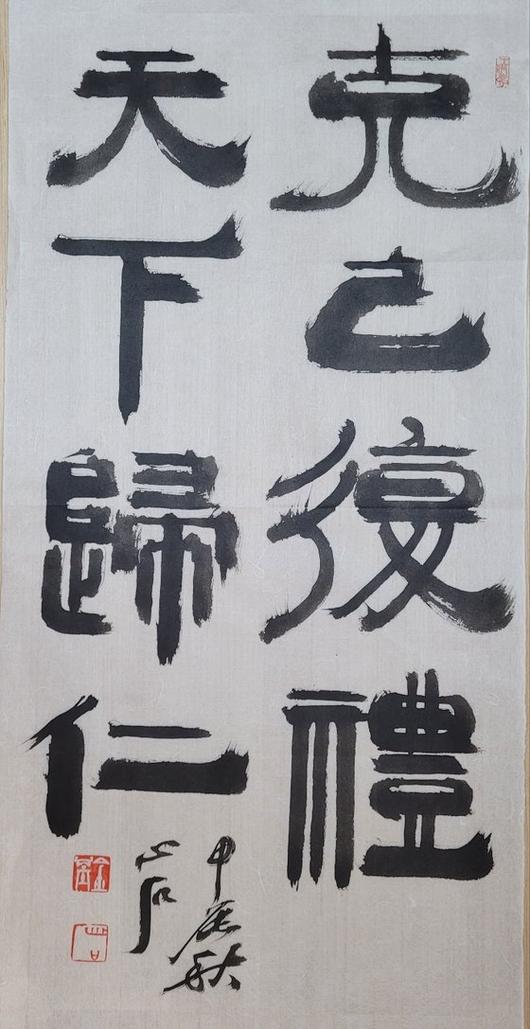 克己復禮
天下歸仁
甲辰秋
心石